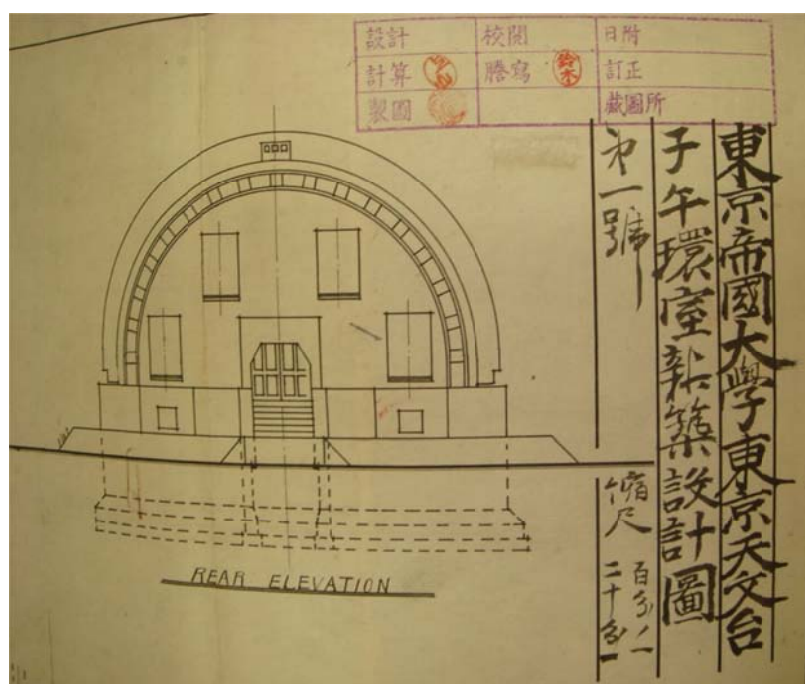 設計 校閲 日附
計算 謄寫 鈴木 訂正
製圖 藏圖所
東京帝國大學東京天文台
子午環室新築設計圖
第一號
縮尺 百分ノ一
二十分一
REAR ELEVATION